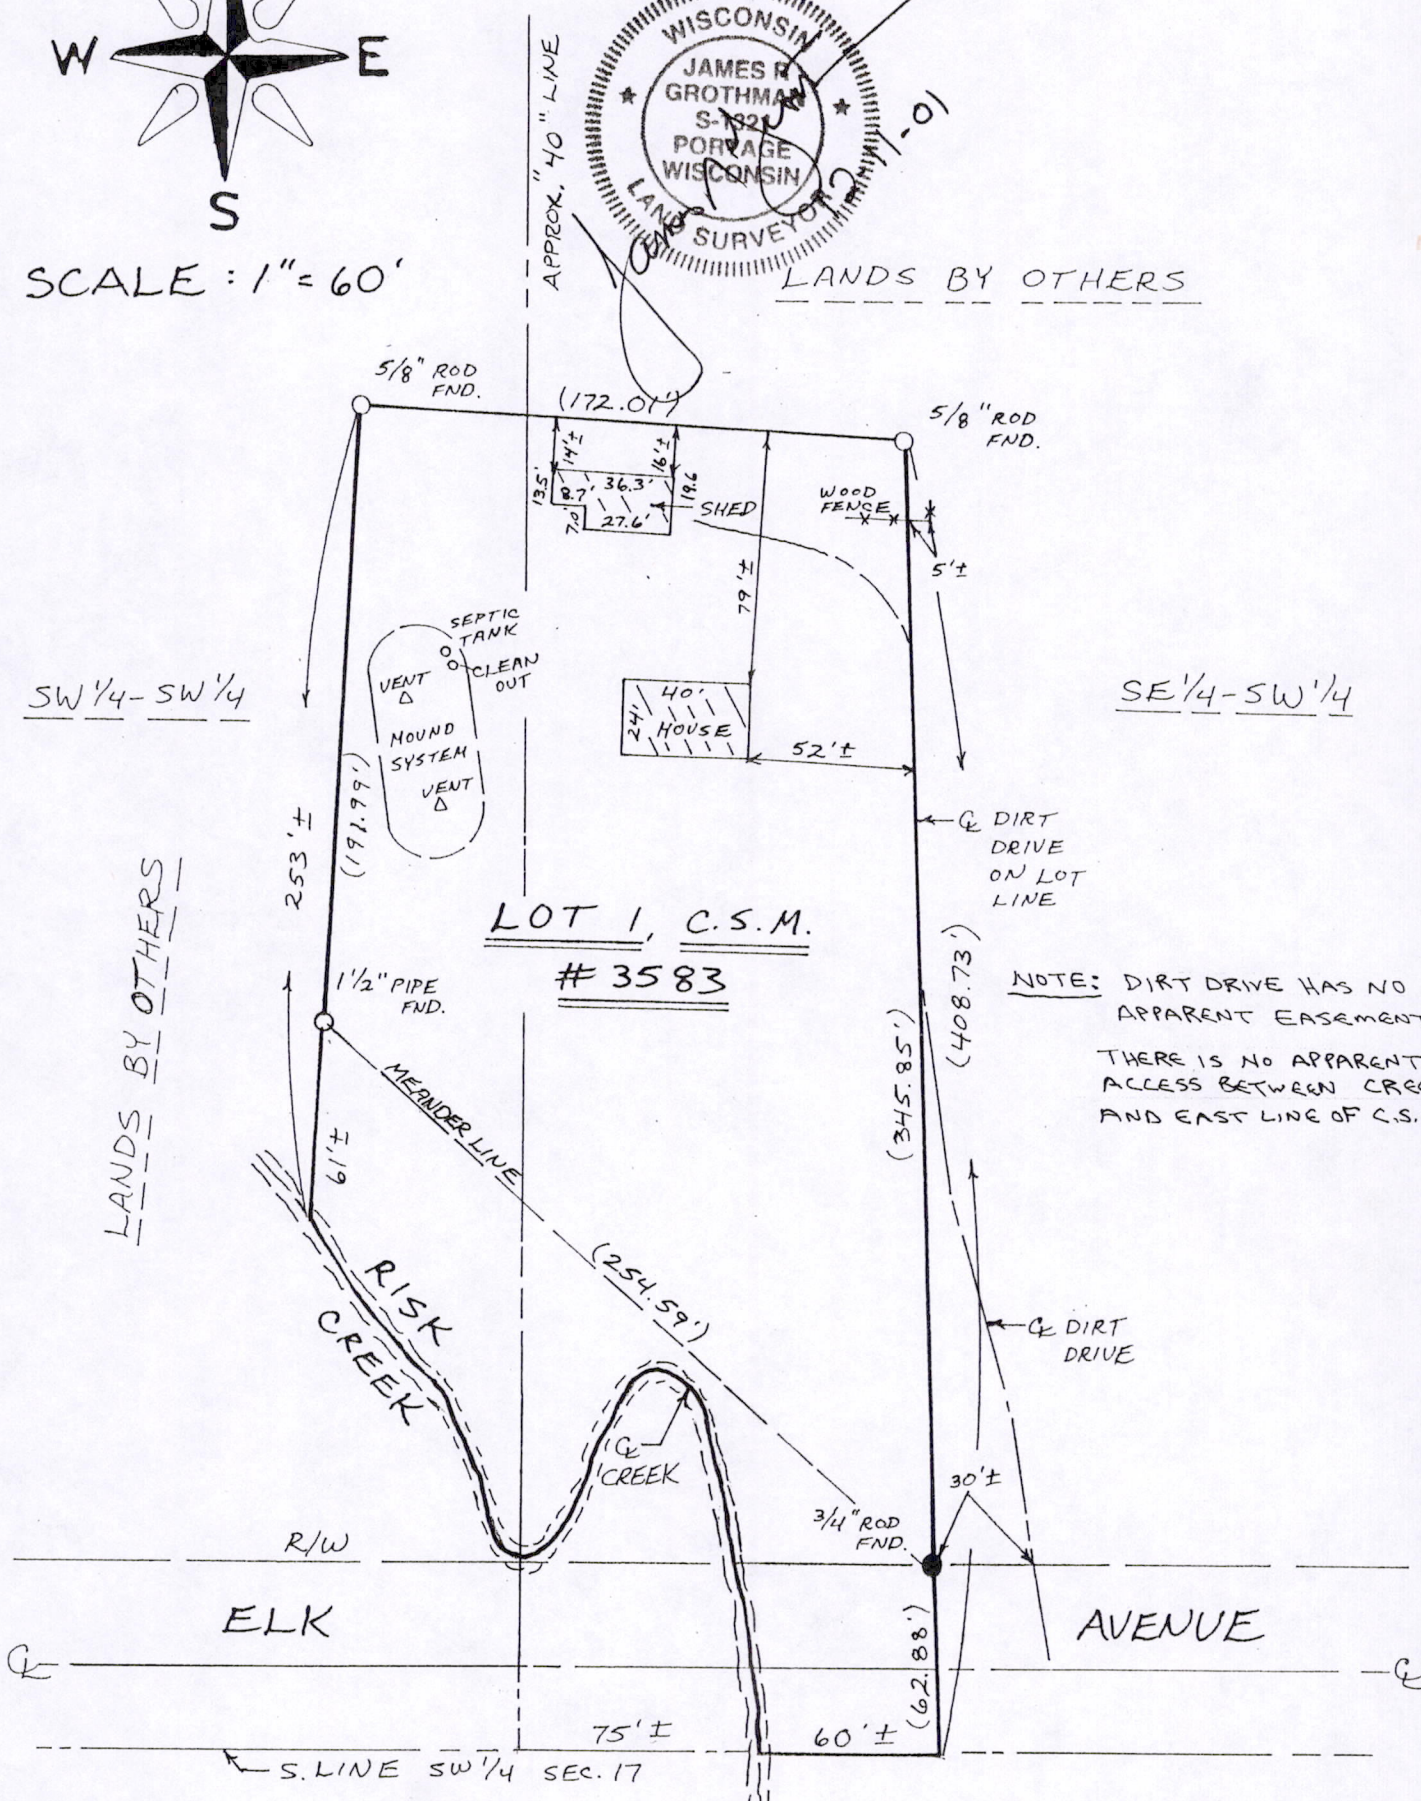 W
E
S
SCALE : 1" = 60'
APPROX. "40" LINE
WISCONSIN
JAMES R
GROTHMAN
S-1321
PORTAGE
WISCONSIN
LAND SURVEYOR
LANDS BY OTHERS
5/8" ROD
FND.
(172.01')
5/8" ROD
FND.
14'±
16'±
13.5'
8.7'
36.3'
19.6
7.0'
27.6'
SHED
WOOD
FENCE
5'±
79'±
SEPTIC
TANK
CLEAN
OUT
VENT
MOUND
SYSTEM
VENT
40'
24'
HOUSE
52'±
SW 1/4 - SW 1/4
SE 1/4 - SW 1/4
253'±
(191.99')
℄ DIRT
DRIVE
ON LOT
LINE
LANDS BY OTHERS
LOT 1, C.S.M.
# 3583
1 1/2" PIPE
FND.
(345.85')
(408.73')
NOTE: DIRT DRIVE HAS NO
APPARENT EASEMENT
THERE IS NO APPARENT
ACCESS BETWEEN CREE
AND EAST LINE OF C.S.
MEANDER LINE
61'±
(254.59')
RISK
CREEK
℄ DIRT
DRIVE
℄
CREEK
30'±
3/4" ROD
FND.
R/W
ELK
AVENUE
(62.88')
℄
℄
75'±
60'±
S. LINE SW 1/4 SEC. 17